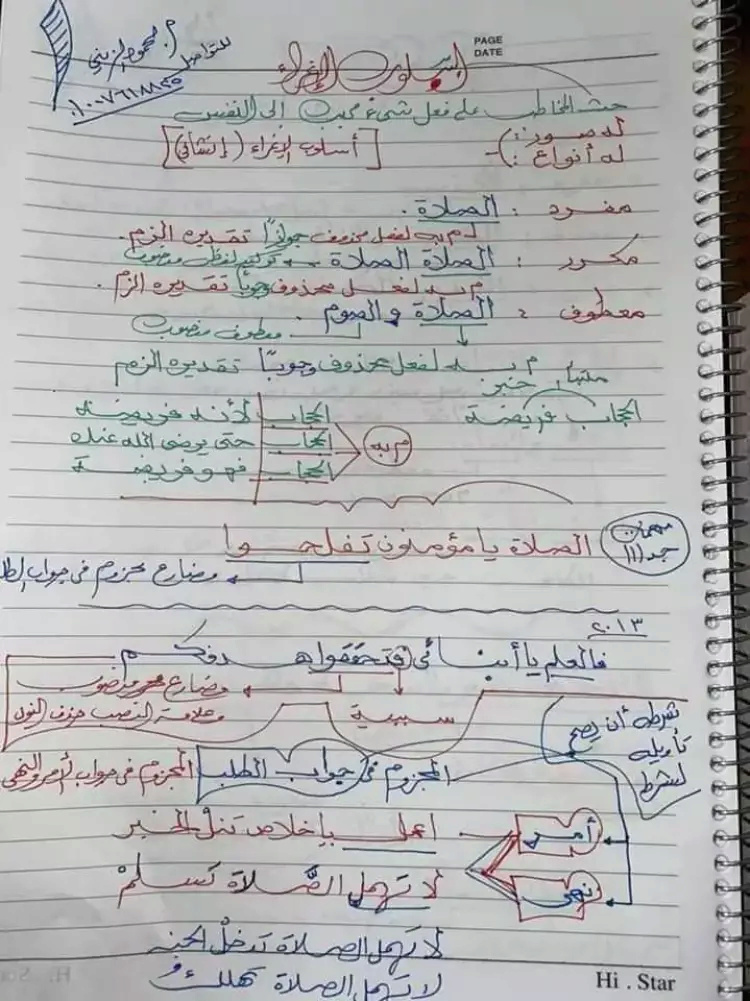 PAGE
DATE
أسلوب الإغراء
للتواصل
م. محمود الزيني
حث المخاطب على فعل شيء محبب الى النفس
له صور:
له أنواع:
[أسلوب الإغراء (إنشائي)]
مفرد : الصلاة .
م به لفعل محذوف جوازًا تقديره الزم.
مكرر : الصلاة الصلاة توكيد لفظي منصوب
م به لفعل محذوف وجوبًا تقديره الزم .
معطوف : الصلاة والصوم
معطوف منصوب
م به لفعل محذوف وجوبًا تقديره الزم
مبتدأ خبر
الحجاب فريضة
الحجاب لأنه فريضة
الحجاب حتى يرضى الله عنك
الحجاب فهو فريضة
م به
مهمة جدا!!!
الصلاة يا مؤمنون تفلحوا
مضارع مجزوم في جواب الطل
٢٠١٣
فالعلم يا أبنائي فتحققوا هدفكم
مضارع منصوب
وعلامة النصب حذف النون
سببية
شرطه أن يصح
تأويله
لشرط
المجزوم في جواب الطلب
المجزوم في جواب الأمر والنهي
أمر
اعمل بإخلاص تنل الخير
نهى
لا تهمل الصَّلاة تسلمْ
لا تهمل الصلاة تدخلْ الجنة
لا تهمل الصلاة تهلكُ
Hi . Star